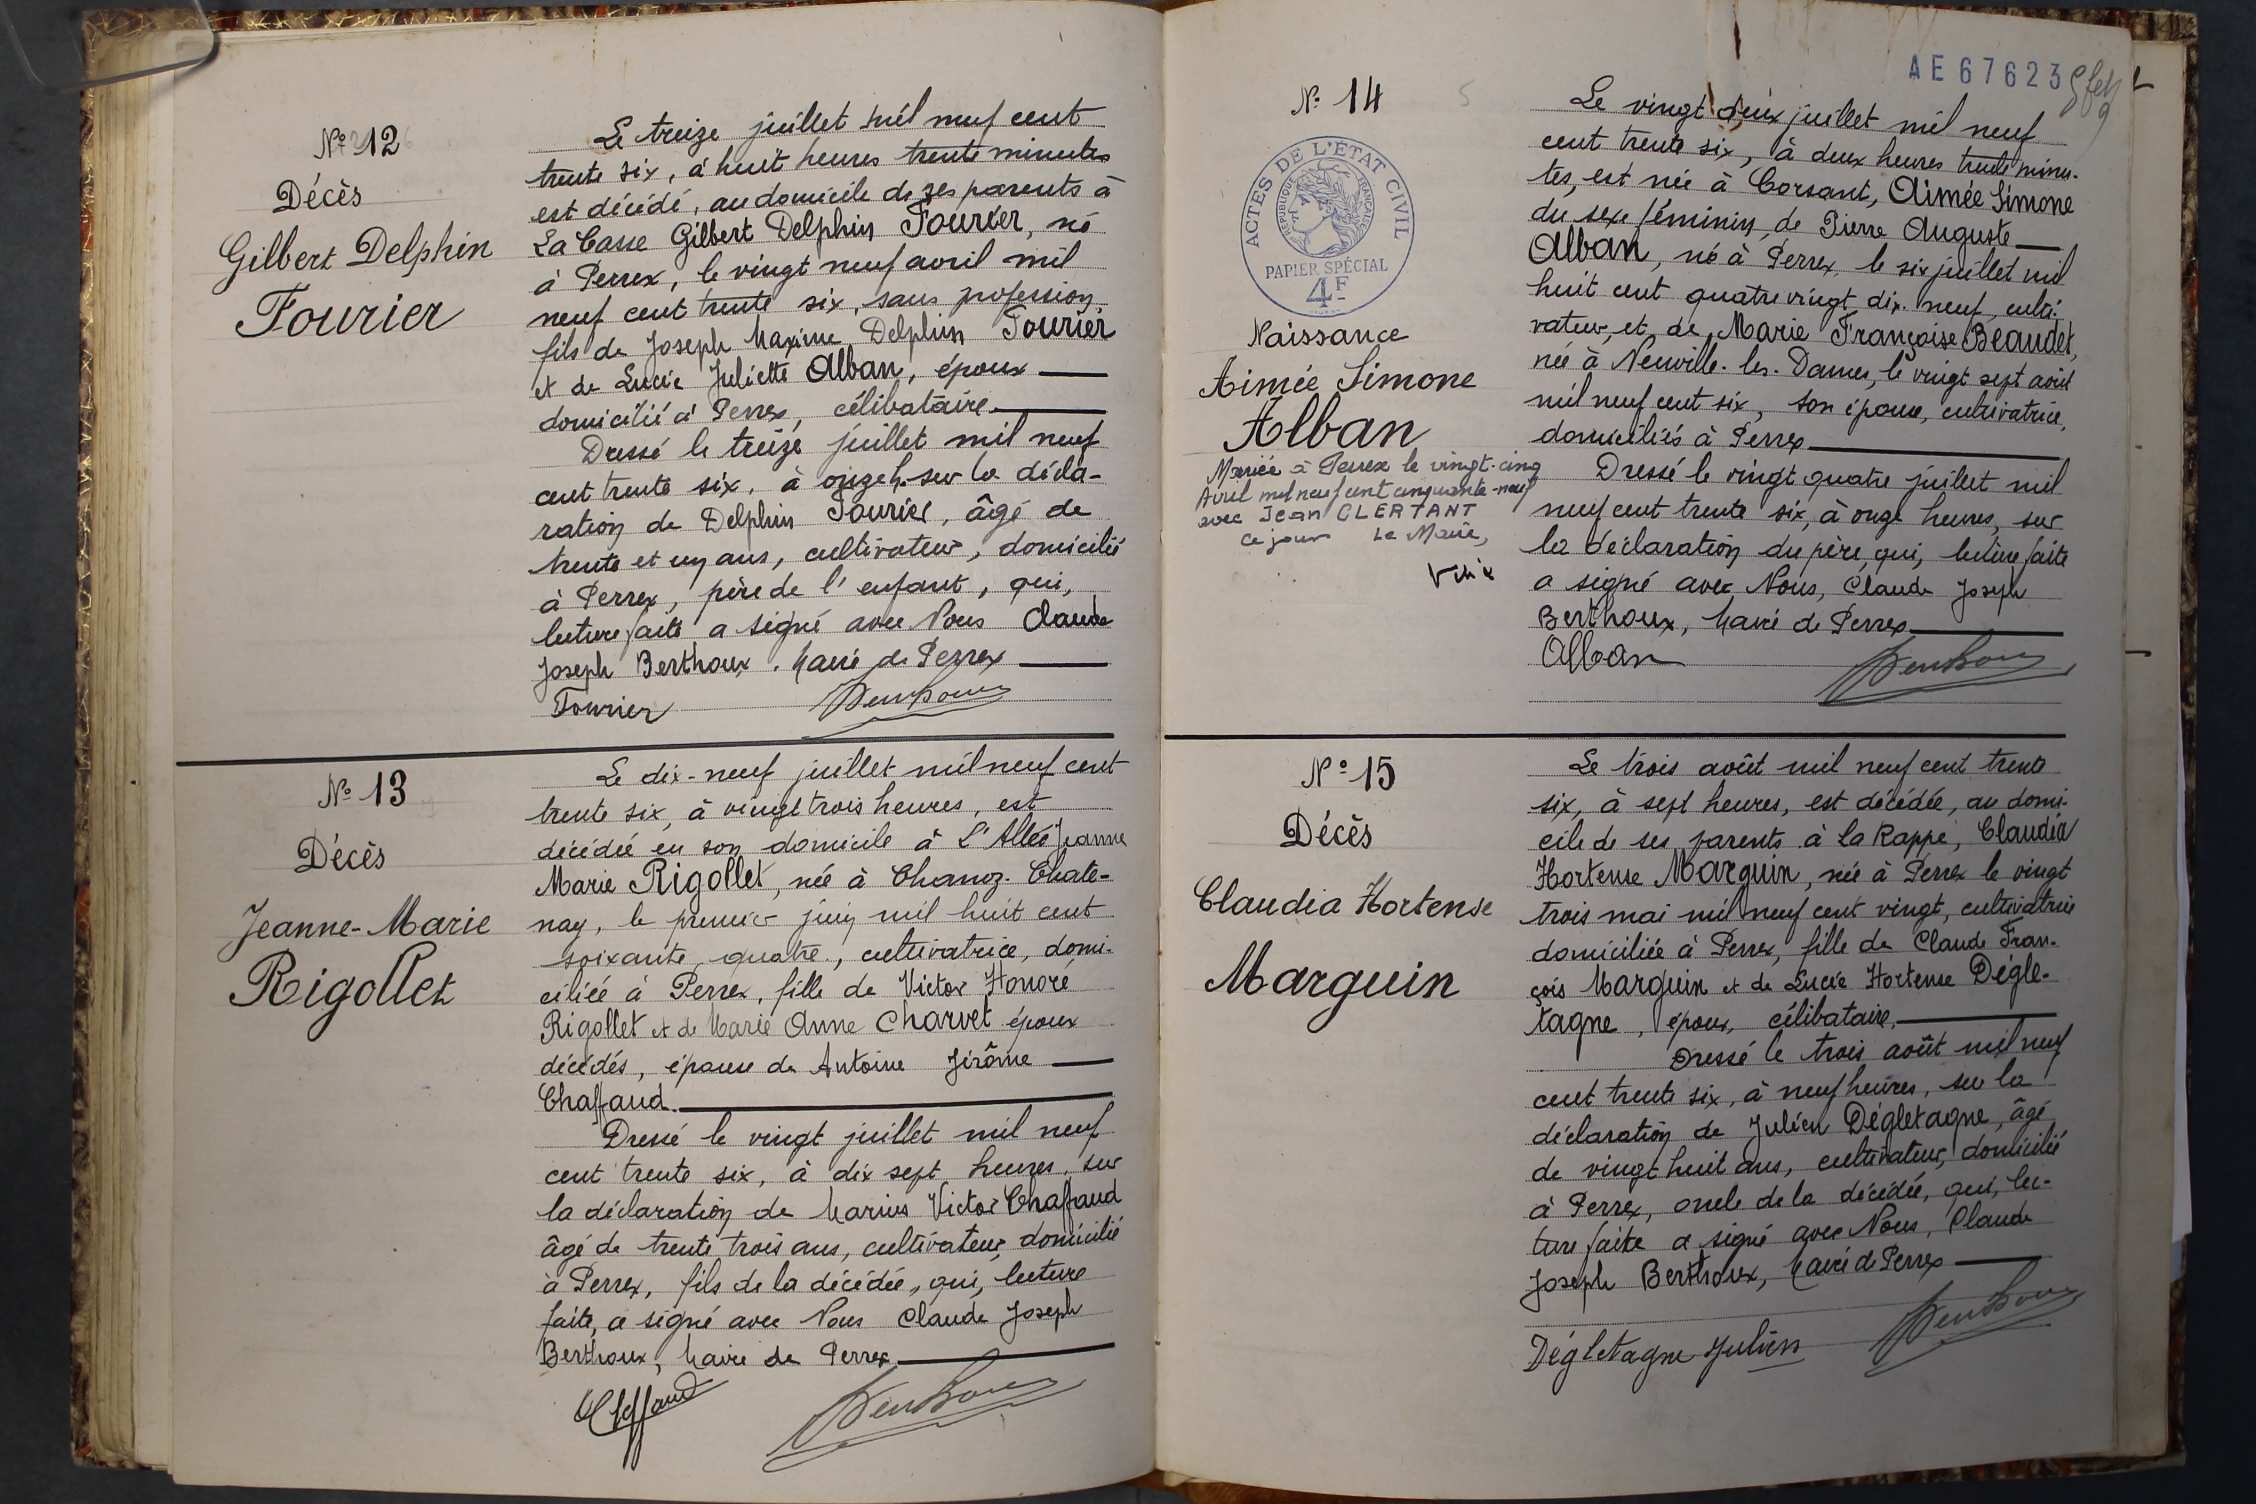 Nº 12
Décès
Gilbert Delphin
Fourier
Le treize juillet mil neuf cent
trente six, à huit heures trente minutes
est décédé, au domicile de ses parents à
La Casse Gilbert Delphin Fourier, né
à Perrex, le vingt neuf avril mil
neuf cent trente six, sans profession,
fils de Joseph Maxime Delphin Fourier
et de Lucie Juliette Alban, époux
domicilié à Perrex, célibataire.
Dressé le treize juillet mil neuf
cent trente six, à onze h. sur la décla-
ration de Delphin Fourier, âgé de
trente et un ans, cultivateur, domicilié
à Perrex, père de l'enfant, qui,
lecture faite a signé avec Nous Claude
Joseph Berthoux, Maire de Perrex
Fourier
Nº 13
Décès
Jeanne-Marie
Rigollet
Le dix-neuf juillet mil neuf cent
trente six, à vingt trois heures, est
décédée en son domicile à L'Allée Jeanne
Marie Rigollet, née à Chanoz-Chate-
nay, le premier juin mil huit cent
soixante quatre, cultivatrice, domi-
ciliée à Perrex, fille de Victor Honoré
Rigollet et de Marie Anne Charvet époux
décédés, épouse de Antoine Jérôme
Chaffaud.
Dressé le vingt juillet mil neuf
cent trente six, à dix sept heures, sur
la déclaration de Marius Victor Chaffaud
âgé de trente trois ans, cultivateur, domicilié
à Perrex, fils de la décédée, qui, lecture
faite, a signé avec Nous Claude Joseph
Berthoux, Maire de Perrex.
Chaffaud
AE67623
Nº 14
ACTES DE L'ÉTAT CIVIL
RÉPUBLIQUE FRANÇAISE
PAPIER SPÉCIAL
4F
Naissance
Aimée Simone
Alban
Mariée à Perrex le vingt-cinq
Avril mil neuf cent cinquante-neuf
avec Jean CLERTANT
Ce jour Le Maire,
Le vingt deux juillet mil neuf
cent trente six, à deux heures trente minu-
tes, est née à Corsant, Aimée Simone
du sexe féminin, de Pierre Auguste
Alban, né à Perrex, le six juillet mil
huit cent quatre vingt dix-neuf, culti-
vateur, et de Marie Françoise Beaudet,
née à Neuville-les-Dames, le vingt sept août
mil neuf cent six, son épouse, cultivatrice,
domiciliés à Perrex
Dressé le vingt quatre juillet mil
neuf cent trente six, à onze heures, sur
la déclaration du père, qui, lecture faite
a signé avec Nous, Claude Joseph
Berthoux, Maire de Perrex
Alban
Nº 15
Décès
Claudia Hortense
Marguin
Le trois août mil neuf cent trente
six, à sept heures, est décédée, au domi-
cile de ses parents à La Rappe, Claudia
Hortense Marguin, née à Perrex le vingt
trois mai mil neuf cent vingt, cultivatrice
domiciliée à Perrex, fille de Claude Fran-
çois Marguin et de Lucie Hortense Dégle-
tagne, époux, célibataire.
Dressé le trois août mil neuf
cent trente six, à neuf heures, sur la
déclaration de Julien Dégletagne, âgé
de vingt huit ans, cultivateur, domicilié
à Perrex, oncle de la décédée, qui, lec-
ture faite a signé avec Nous, Claude
Joseph Berthoux, Maire de Perrex
Dégletagne Julien